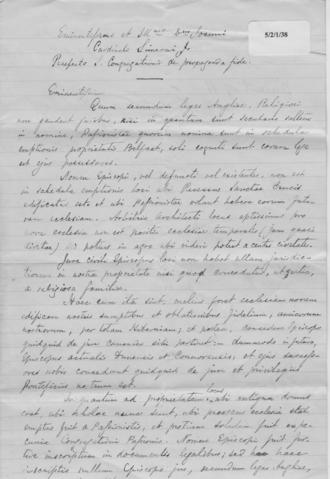 5/2/1/38
Eminentissimo et Illmo Dno Joanni
Cardinali Simeoni,
Praefecto S. Congregationis de propaganda fide.
Eminentissime
Quum secundum leges Angliae, Religiosi
non gaudent juribus, nisi in quantum sunt seculares saltem
in nomine, Passionistae quorum nomina sunt in schedula
emptionis proprietatis Belfast, soli cogniti sunt coram lege
est ejus possessores.
Nomen Episcopi, vel defuncti vel existentis, non est
in schedula emptionis loci ubi Recessus Sanctae Crucis
aedificatus est et ubi Passionistae volunt habere eorum futu-
ram ecclesiam. Arbitrio architecti locus aptissimus pro
nova ecclesia non est positio ecclesiae temporalis (jam quasi
) sed potius in agro ubi videri potest a centro civitatis.
Jure civili Episcopus loci non habet ullam jurisdic-
tionem in nostra proprietate nisi quod conceditur,
a religiosa familia.
Haec cum ita sint, melius foret ecclesiam novam
edificare nostris sumptibus et oblationibus fidelium, amicorum
nostrorum, per totam Hiberniam; et postea, concedere Episcopo
quidquid de jure canonico sibi pertinet: dummodo in futuro,
Episcopus actualis Dunensis et Connorensis, et ejus successo-
res nobis concedant quidquid de jure et privilegiis
Pontificiis nostrum est.
In quantum ad proprietatem totus, ubi antiqua domus
erat, ubi scholae nunc sunt, ubi praesens ecclesia stat
emptus fuit a Passionistis, et pretium solutum fuit ex pe-
cunia Congregationis Passionis. Nomen Episcopi fuit for-
tive inscriptum in documentis legalibus, sed haec
inscriptio nullum Episcopo jus, secundum leges Angliae,